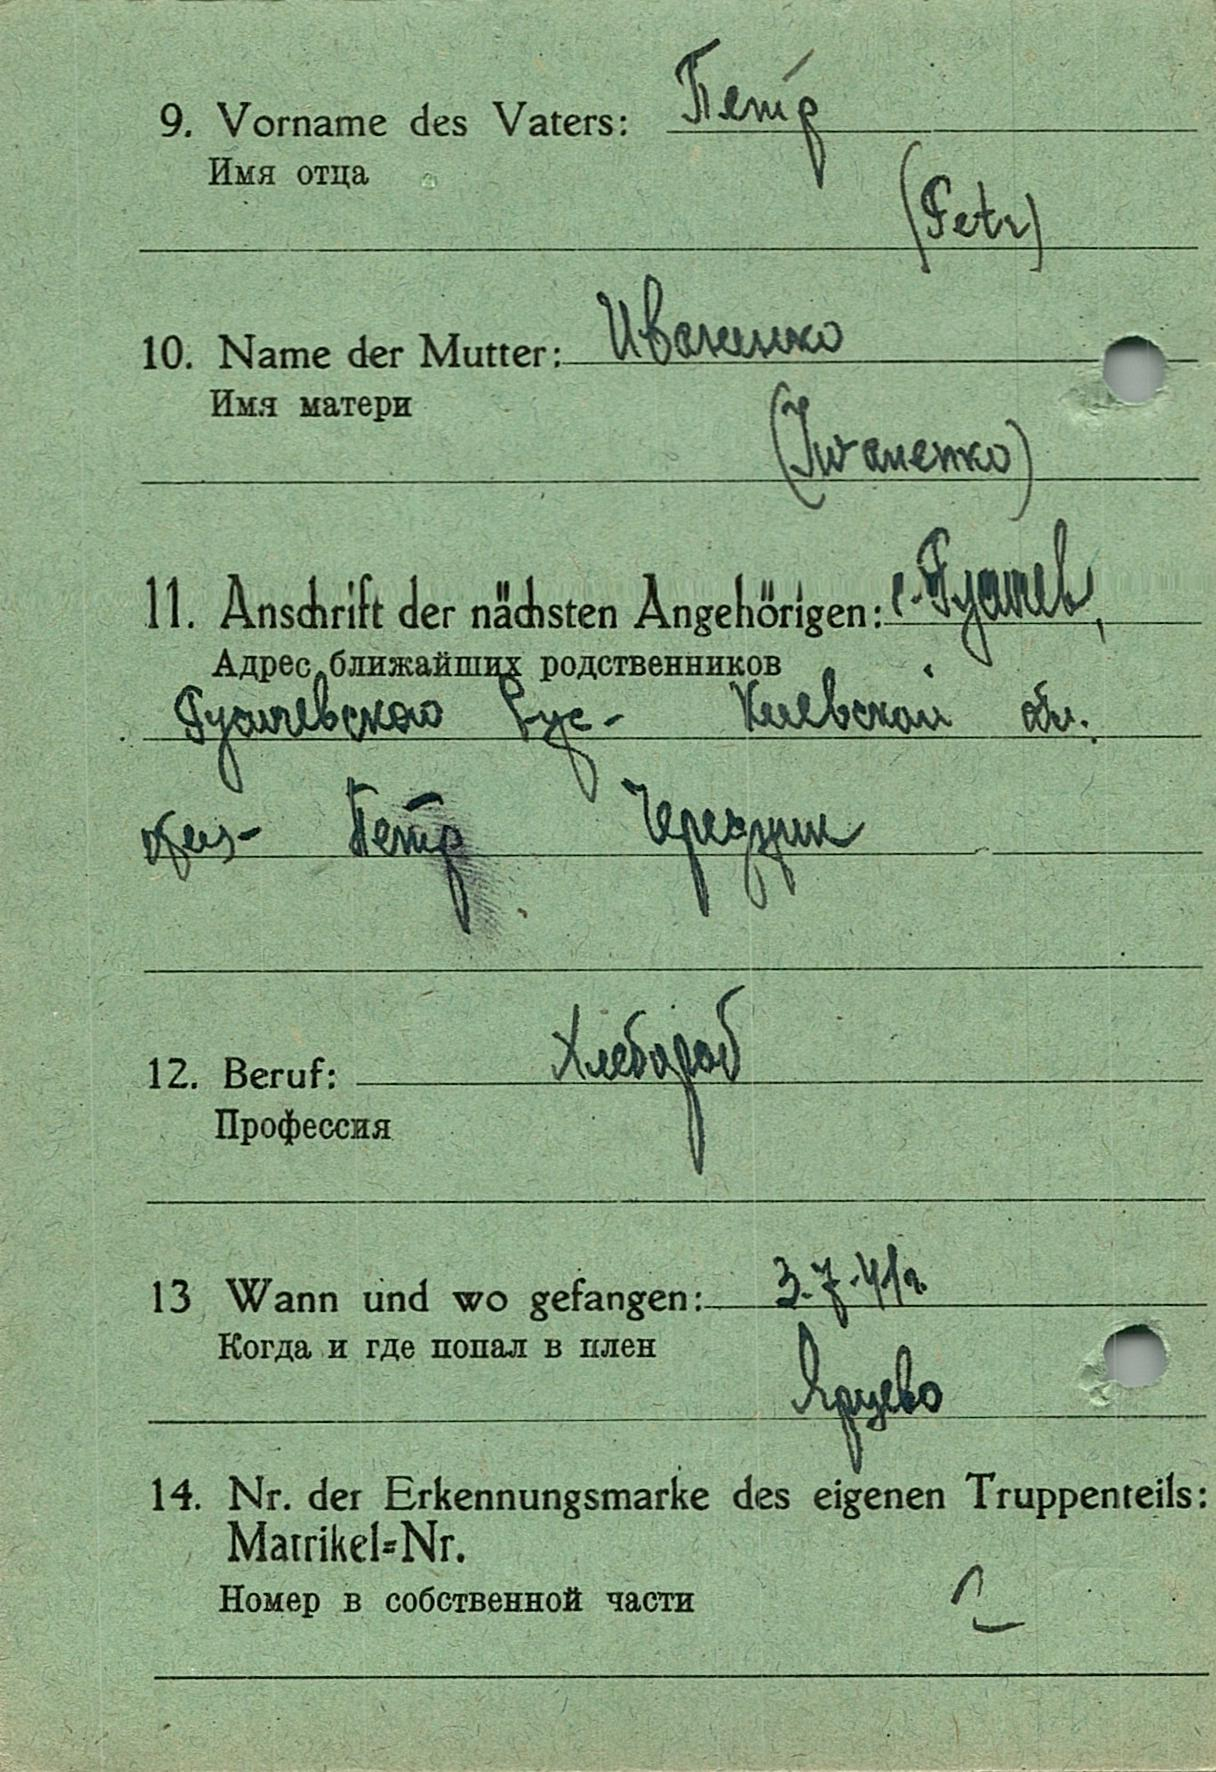 9. Vorname des Vaters: Петр
Имя отца
(Petr)
10. Name der Mutter: Иваненко
Имя матери
(Iwanenko)
11. Anschrift der nächsten Angehörigen: с.
Адрес ближайших родственников
Киевской обл.
Петр
12. Beruf: Хлебороб
Профессия
13 Wann und wo gefangen: 3.7.41г.
Когда и где попал в плен
Ярцево
14. Nr. der Erkennungsmarke des eigenen Truppenteils:
Matrikel=Nr.
Номер в собственной части